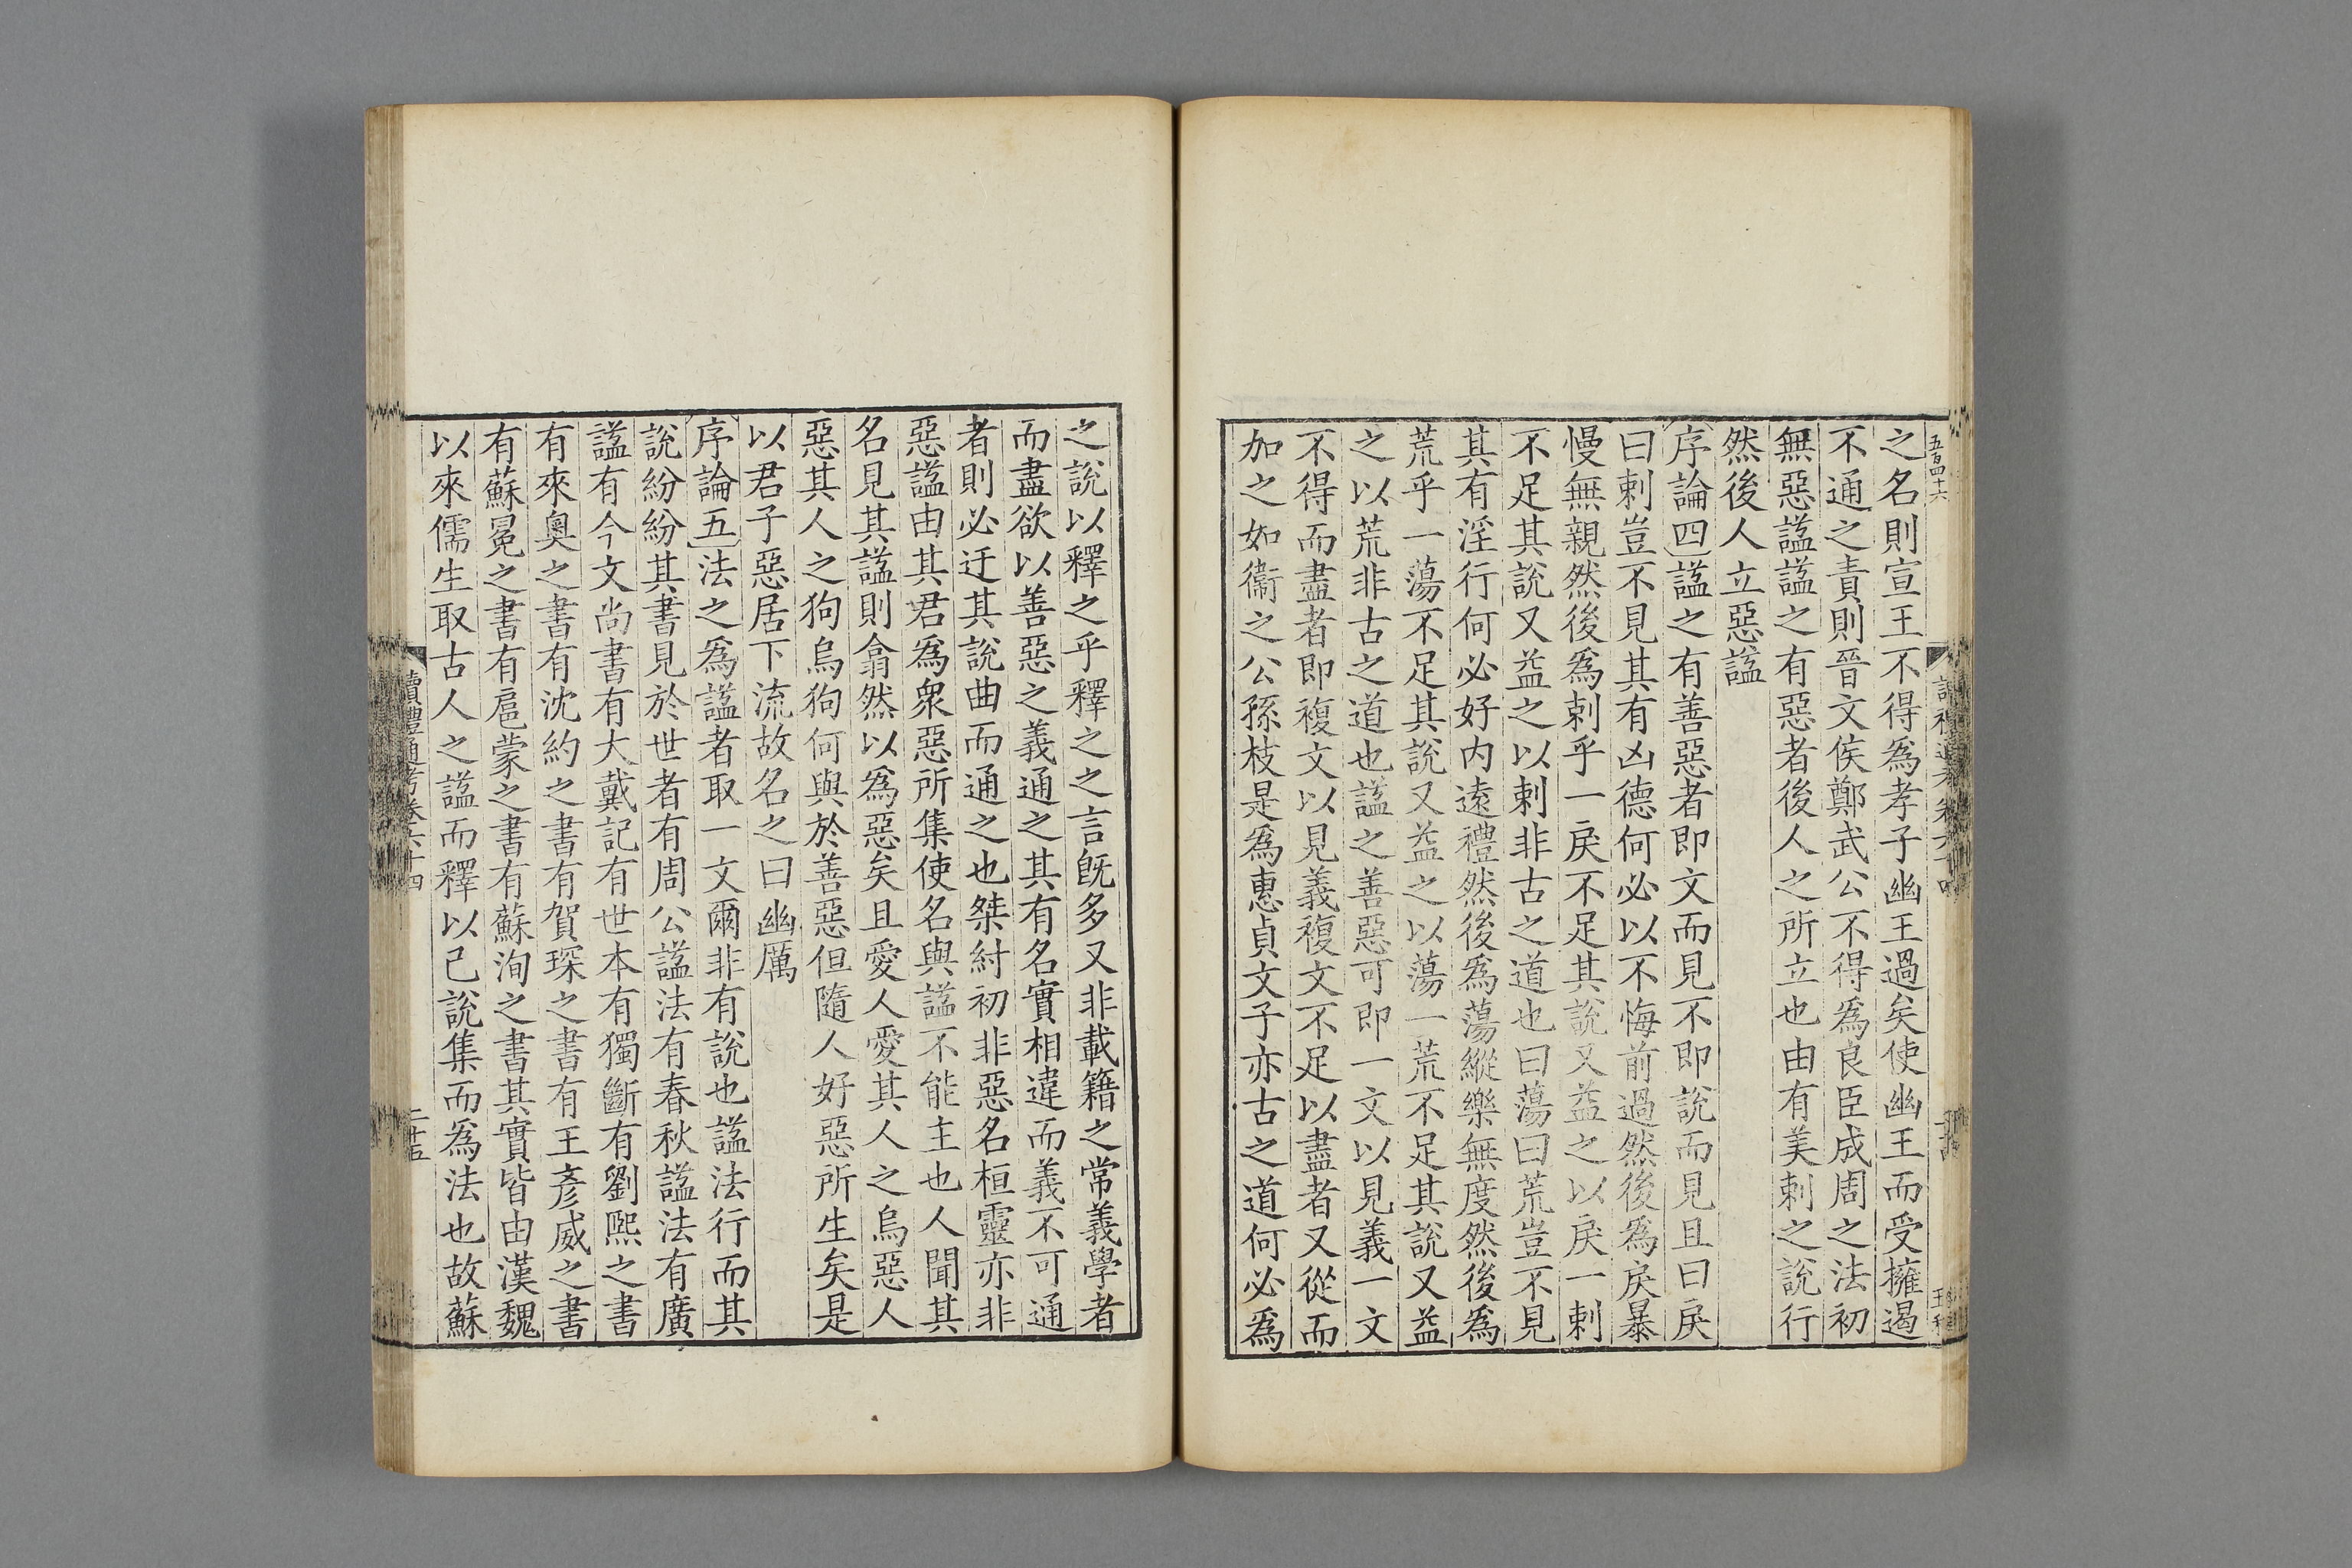 五百四十六
之名則宣王不得爲孝子幽王過矣使幽王而受擁遏
不通之責則晉文侯鄭武公不得爲良臣成周之法初
無惡諡諡之有惡者後人之所立也由有美刺之說行
然後人立惡諡
序論四諡之有善惡者即文而見不即說而見且曰戾
曰剌豈不見其有凶德何必以不悔前過然後爲戾暴
慢無親然後爲剌乎一戾不足其說又益之以戾一剌
不足其說又益之以剌非古之道也曰蕩曰荒豈不見
其有淫行何必好内遠禮然後爲蕩縱樂無度然後爲
荒乎一蕩不足其說又益之以蕩一荒不足其說又益
之以荒非古之道也諡之善惡可即一文以見義一文
不得而盡者即複文以見義複文不足以盡者又從而
加之如衞之公孫枝是爲惠貞文子亦古之道何必爲
之說以釋之乎釋之之言旣多又非載籍之常義學者
而盡欲以善惡之義通之其有名實相違而義不可通
者則必迂其說曲而通之也桀紂初非惡名桓靈亦非
惡諡由其君爲衆惡所集使名與諡不能主也人聞其
名見其諡則翕然以爲惡矣且愛人愛其人之烏惡人
惡其人之狗烏狗何與於善惡但隨人好惡所生矣是
以君子惡居下流故名之曰幽厲
序論五法之爲諡者取一文爾非有說也諡法行而其
說紛紛其書見於世者有周公諡法有春秋諡法有廣
諡有今文尚書有大戴記有世本有獨斷有劉熙之書
有來奧之書有沈約之書有賀琛之書有王彥威之書
有蘇冕之書有扈蒙之書有蘇洵之書其實皆由漢魏
以來儒生取古人之諡而釋以己說集而爲法也故蘇
讀禮通考卷六十四
二十五